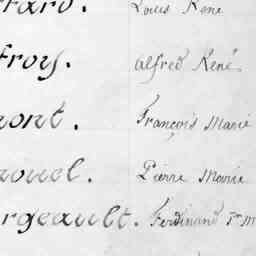 Louis René
froy. Alfred René
mont. François Marie
nouel. Pierre Marie
rgeault. Ferdinand